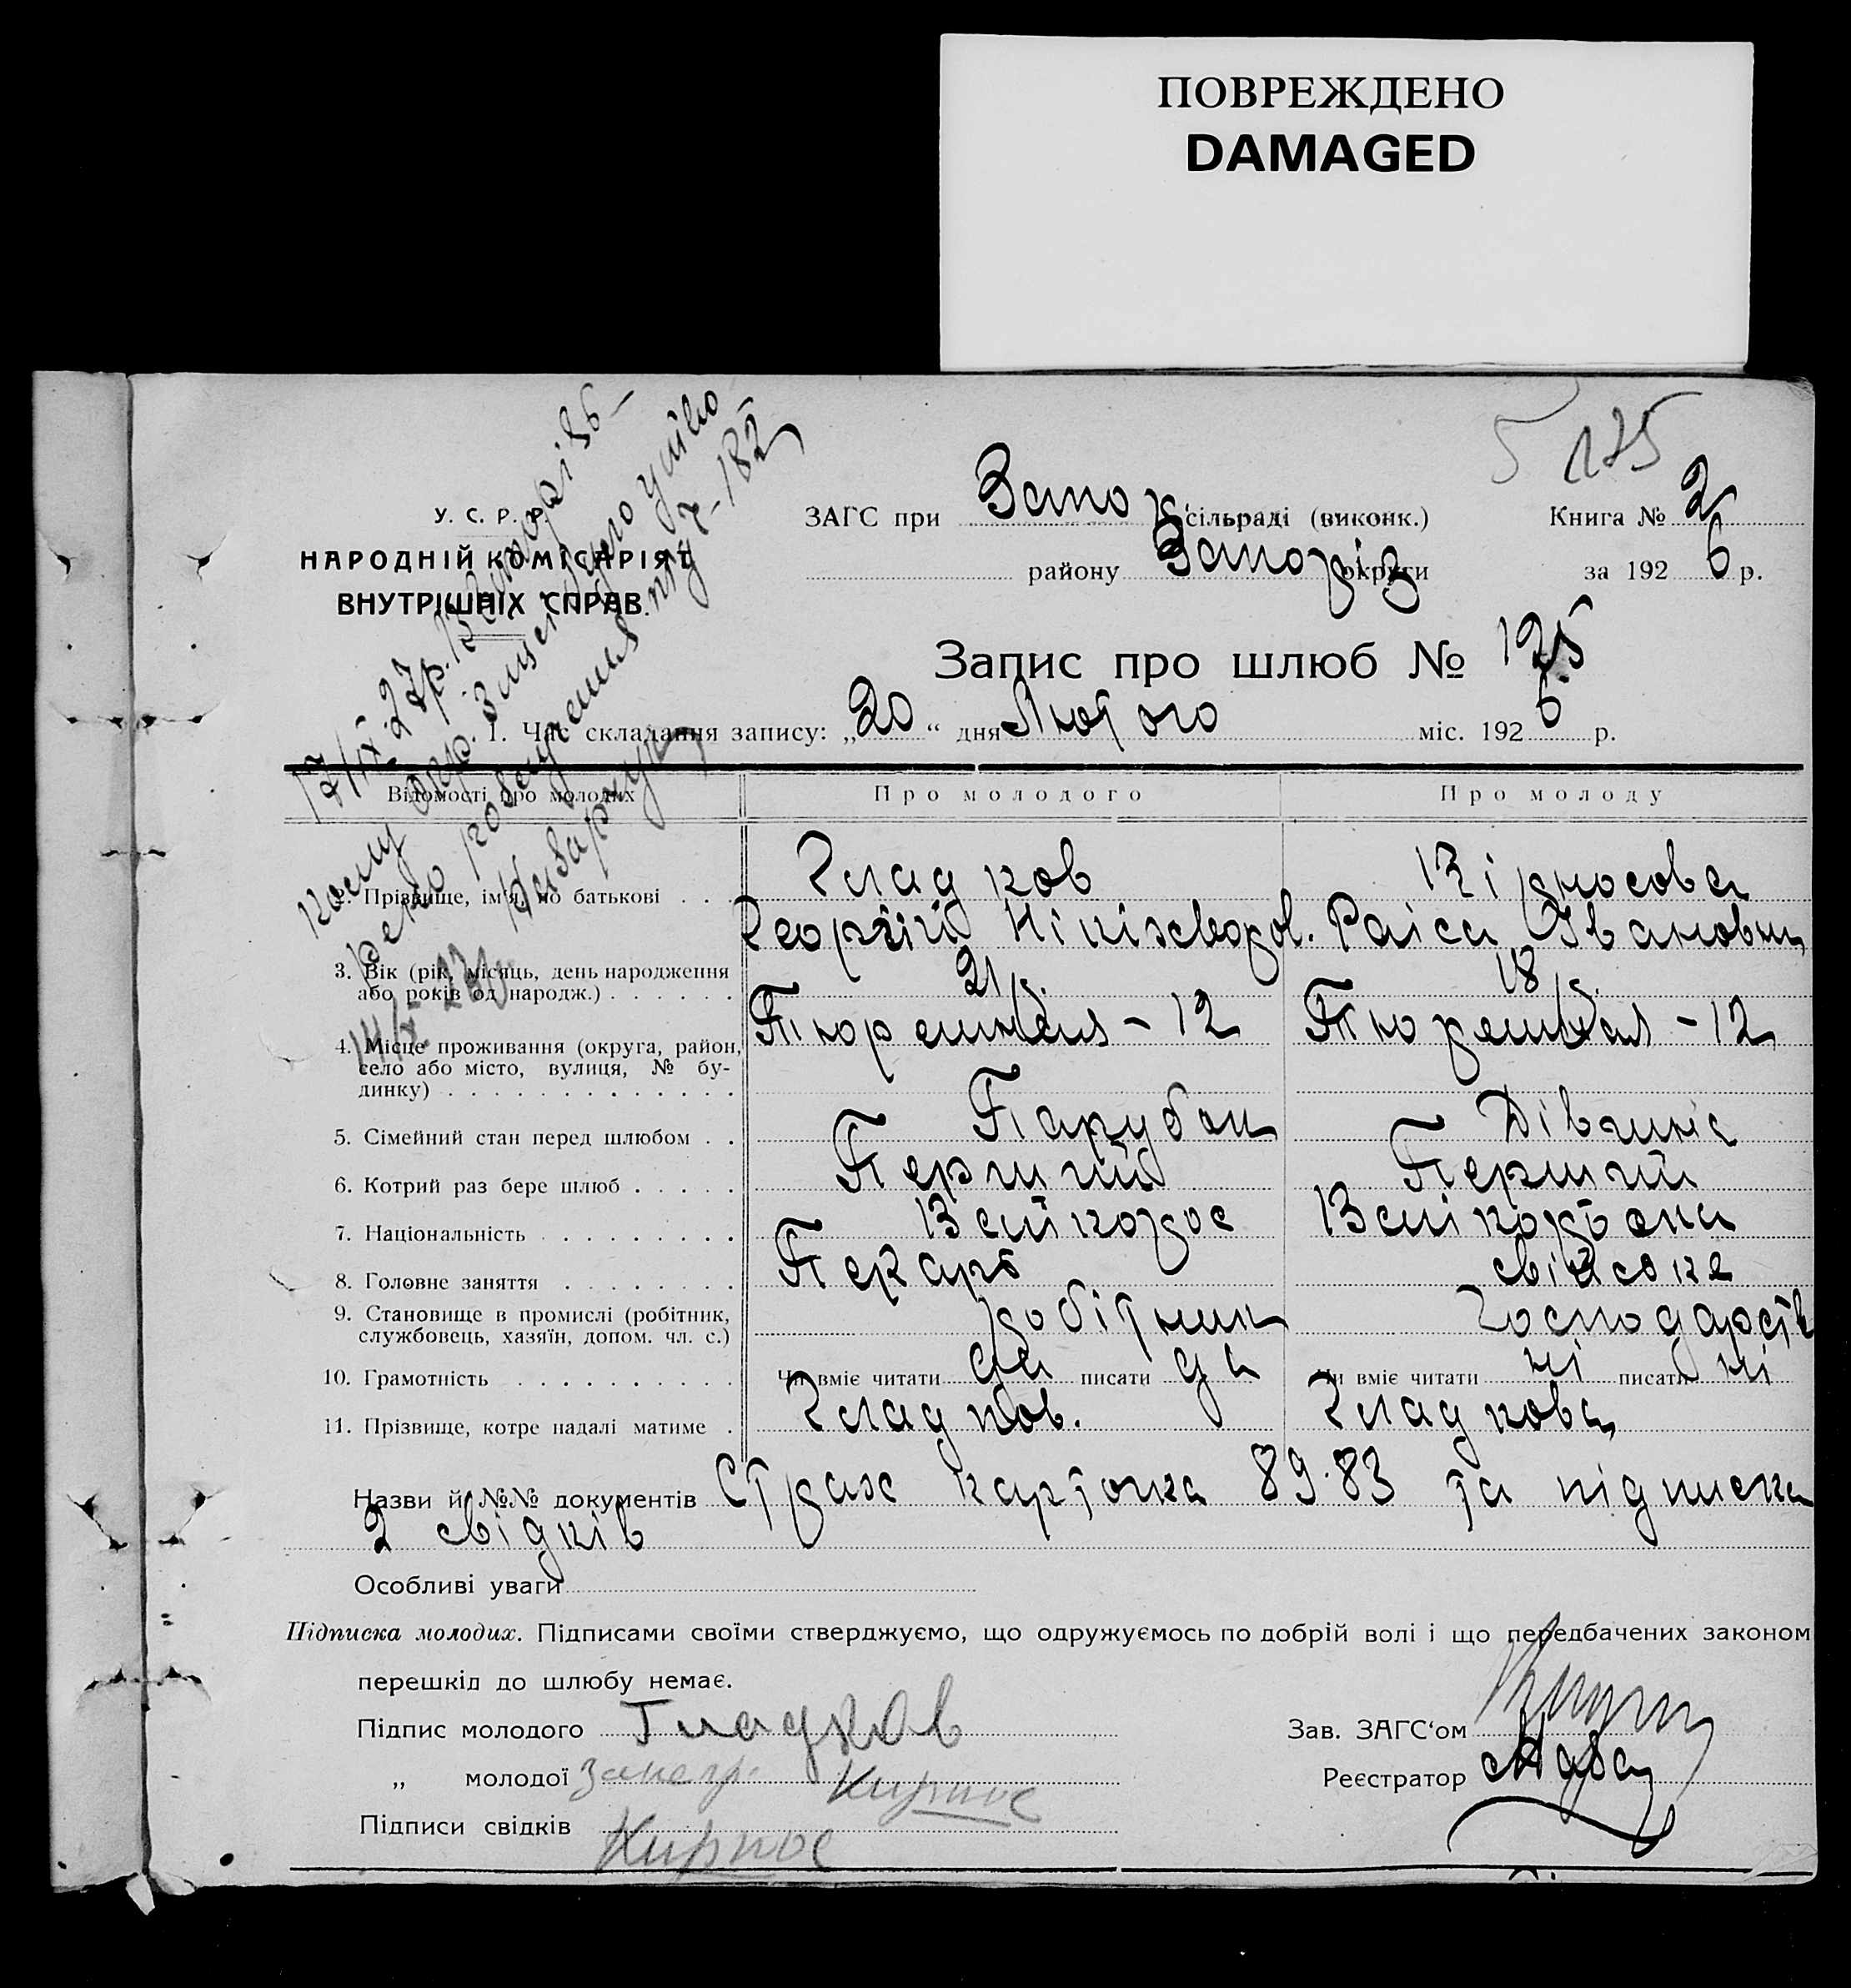 ПОВРЕЖДЕНО
DAMAGED
5 125
У. С. Р. Р.
НАРОДНІЙ КОМІСАРІЯТ
ВНУТРІШНІХ СПРАВ.
ЗАГС при Запор сільраді (виконк.) Книга № 2
району Запоріз округи за 1926 р.
Запис про шлюб № 125
1. Час складання запису: „20“ дня Лютого міс. 1926 р.
17/IX 27р. В Запорізь-
Відомості про молодих Про молодого Про молоду
Гладков
2. Прізвище, ім'я, по батькові . . . Георгій Нікіхворов. Раіса Івановна
3. Вік (рік, місяць, день народження 21 р. 18 р.
або років од народж.) . . . . . .
Тюремная - 12 Тюремная - 12
4. Місце проживання (округа, район,
село або місто, вулиця, № бу-
динку) . . . . . . . . . . . . .
5. Сімейний стан перед шлюбом . . Парубок Дівчина
6. Котрий раз бере шлюб . . . . . Перший Перший
7. Національність . . . . . . . . . Велікорос
8. Головне заняття . . . . . . . . Пекарь
9. Становище в промислі (робітник, робітник господарств
службовець, хазяїн, допом. чл. с.)
10. Грамотність . . . . . . . . . . Чи вміє читати да писати да Чи вміє читати ні писати ні
11. Прізвище, котре надалі матиме . Гладков. Гладкова
Назви й №№ документів Страх карточка 89.83 та підписка
2 свідків
Особливі уваги
Підписка молодих. Підписами своїми стверджуємо, що одружуємось по добрій волі і що передбачених законом
перешкід до шлюбу немає.
Підпис молодого Гладков Зав. ЗАГС‘ом
„ молодої Кирнос Реєстратор
Підписи свідків Кирнос